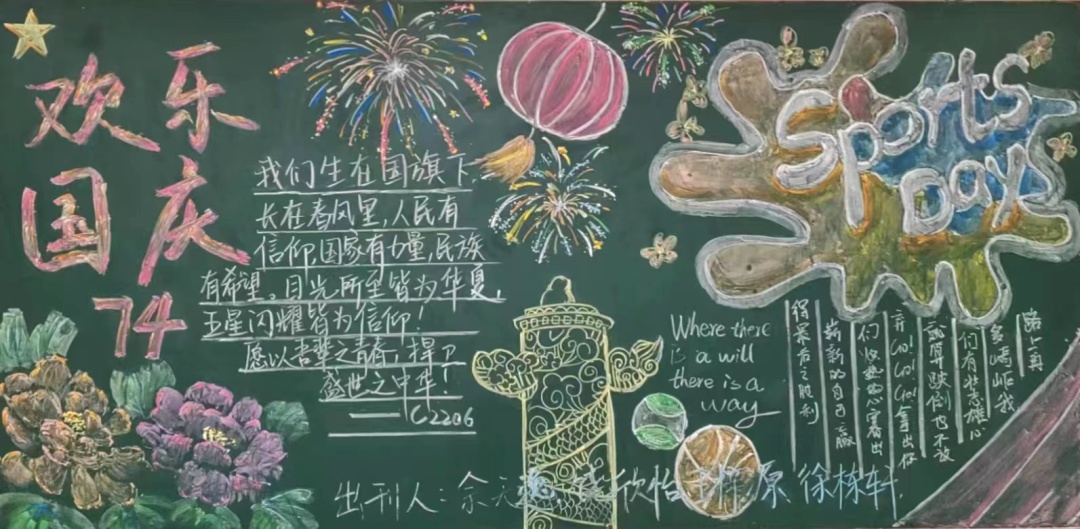 欢乐
国庆
74
我们生在国旗下,
长在春风里,人民有
信仰,国家有力量,民族
有希望。目光所至皆为华夏,
五星闪耀皆为信仰!
愿以吾辈之青春,捍卫
盛世之中华!
——C2206
Sports
Day
Where there
is a will
there is a
way
路上再
多崎岖我
们有壮志雄心
就算跌倒也不放
弃Go!Go!Go!拿出你
们炽热的心穿着出
崭新的自己赢
得最后之胜利
出刊人:余元 欣怡 原 徐栋轩